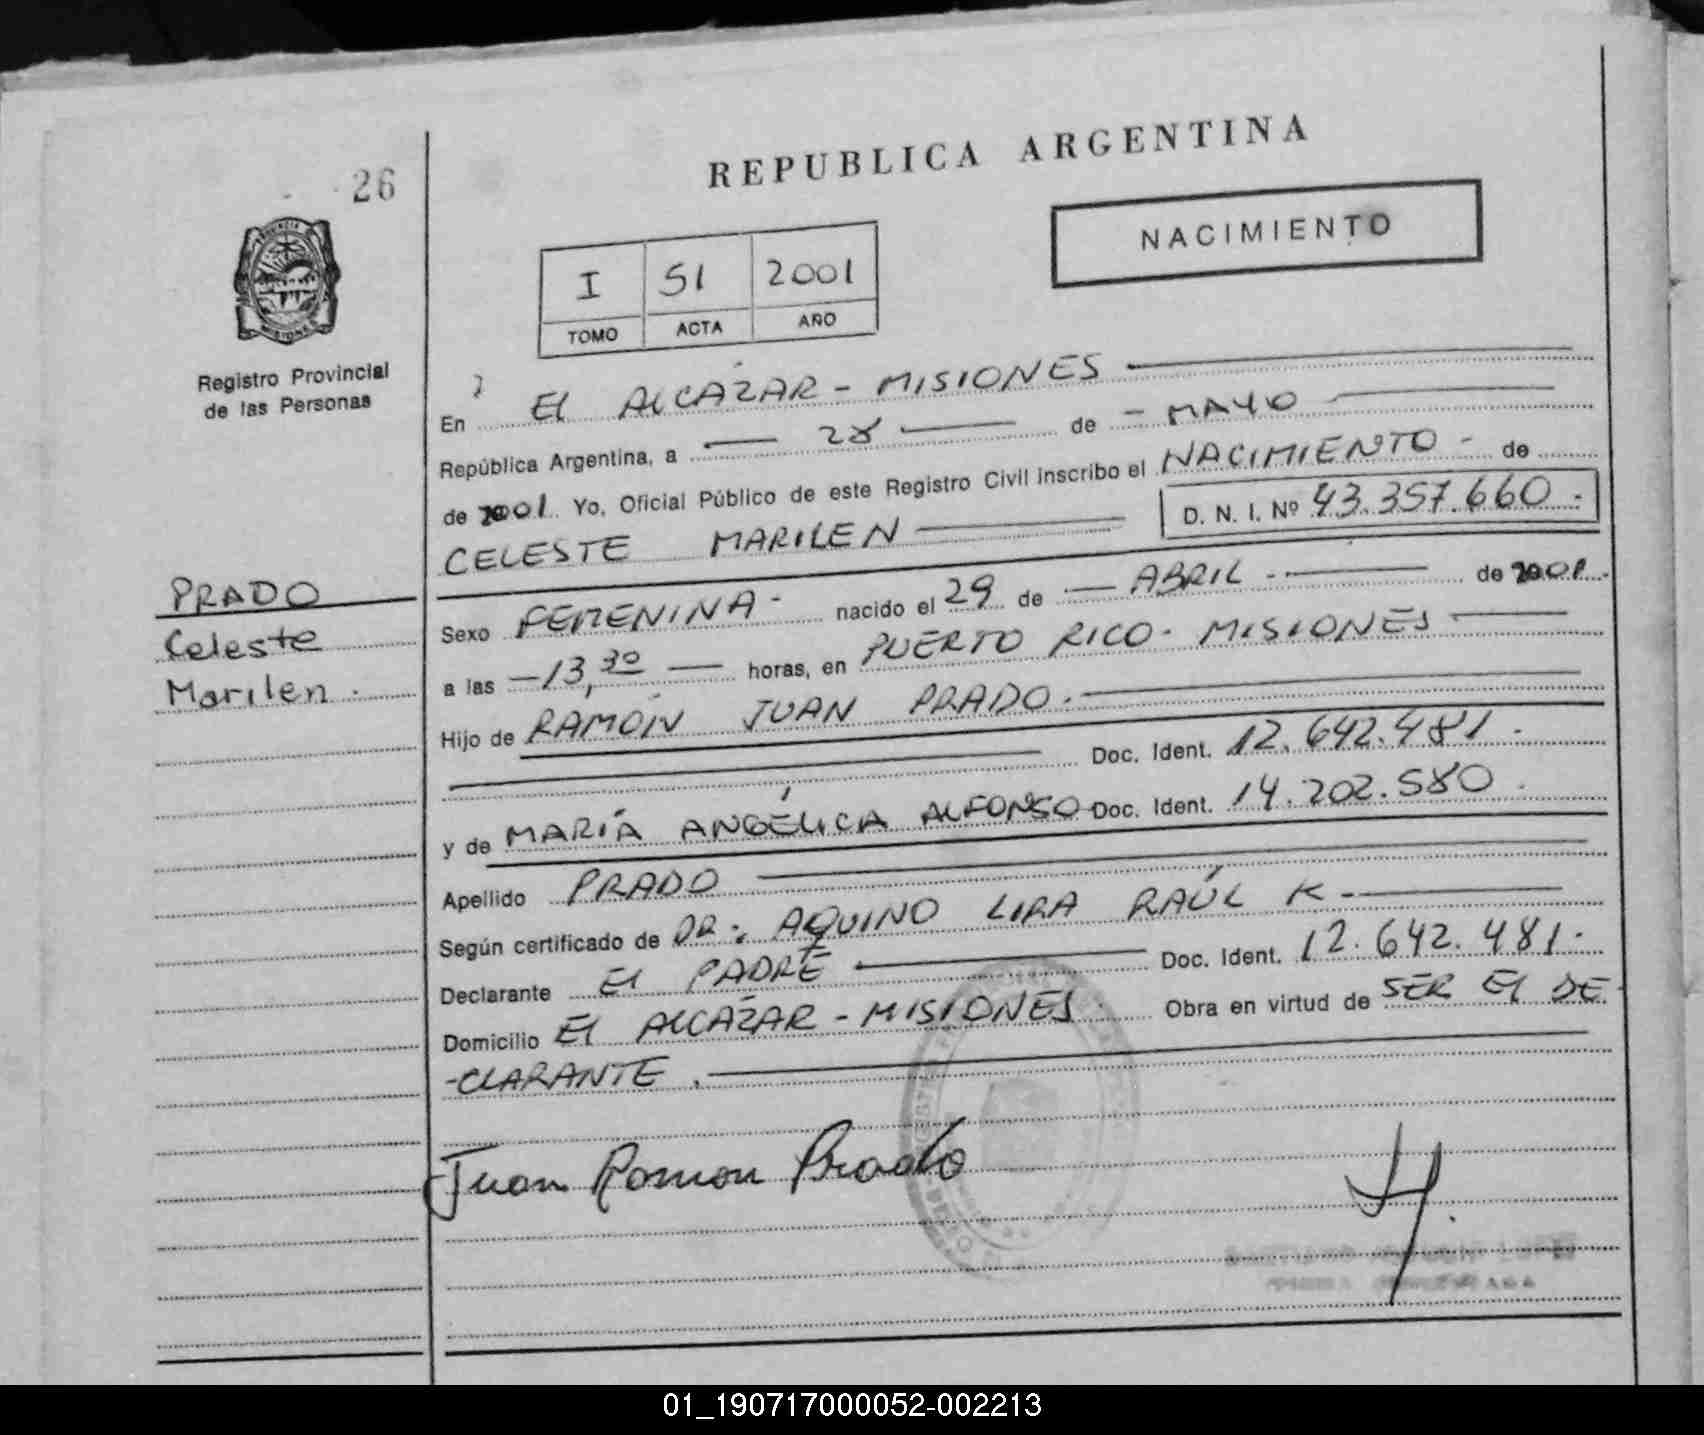 26
PROVINCIA
MISIONES
Registro Provincial
de las Personas
REPUBLICA ARGENTINA
NACIMIENTO
I 51 2001
TOMO ACTA AÑO
En El ALCÁZAR - MISIONES
República Argentina, a 28 de - MAYO
de 2001. Yo, Oficial Público de este Registro Civil inscribo el NACIMIENTO - de
CELESTE MARILEN D. N. I. Nº 43.357.660.-
PRADO
Celeste
Marilen.
Sexo FEMENINA - nacido el 29 de ABRIL - de 2001.
a las -13,30 horas, en PUERTO RICO - MISIONES
Hijo de RAMÓN JUAN PRADO.
Doc. Ident. 12.642.481.
y de MARÍA ANGÉLICA ALFONSO Doc. Ident. 14.202.580.
Apellido PRADO
Según certificado de DR: AQUINO LIRA RAÚL K -
Declarante El PADRE Doc. Ident. 12.642.481.
Domicilio El ALCÁZAR - MISIONES. Obra en virtud de SER El DE
-CLARANTE.
Juan Ramon Prado
01_190717000052-002213